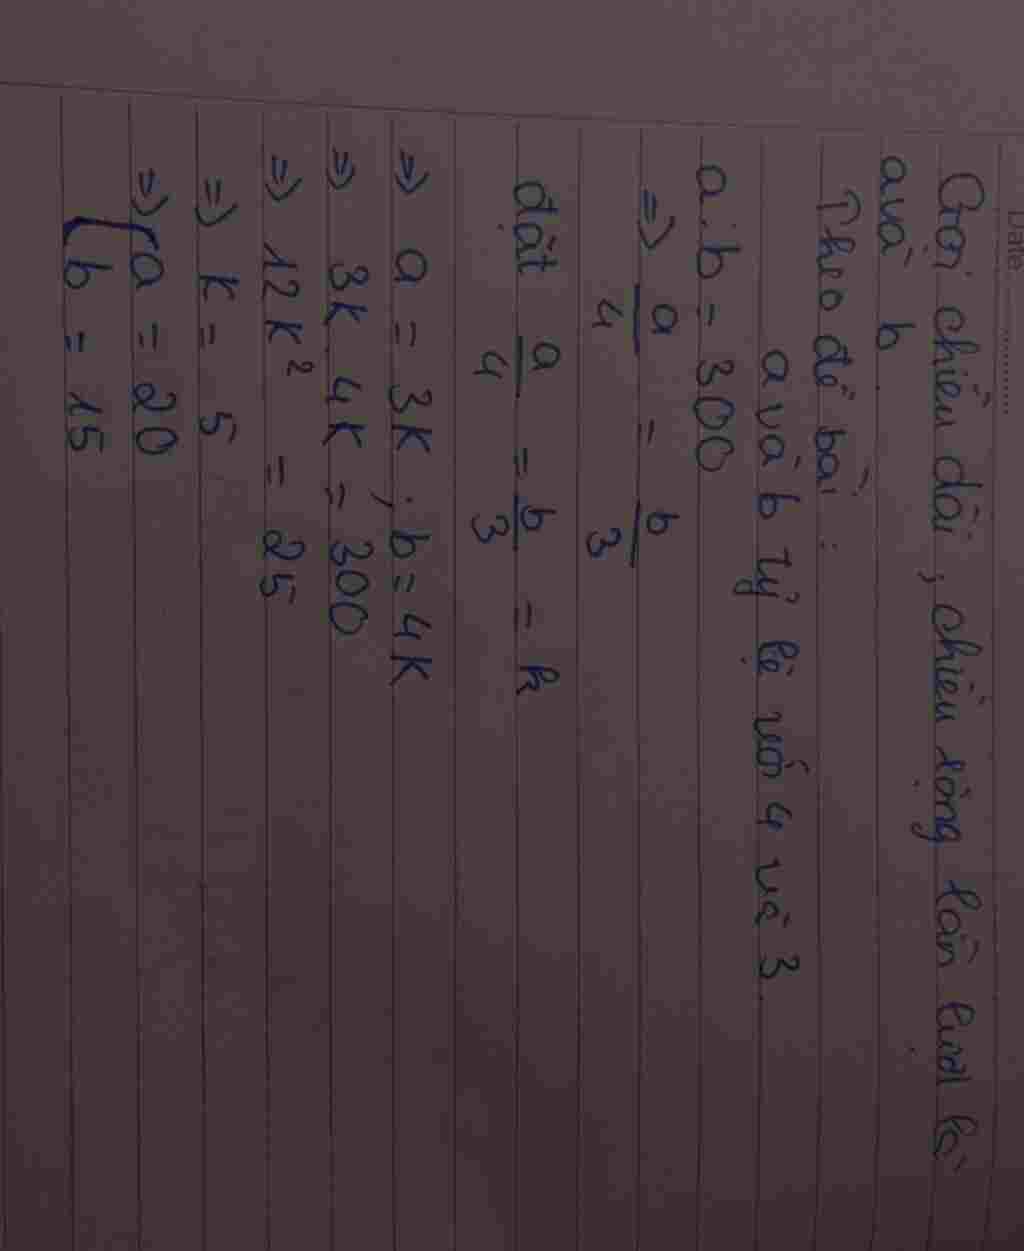 Date ............
Gọi chiều dài, chiều rộng lần lượt là
a và b
Theo đề bài :
a và b tỷ lệ với 4 và 3
a.b = 300
=> a/4 = b/3
đặt a/4 = b/3 = k
=> a = 3k ; b = 4k
=> 3k. 4k = 300
=> 12k² = 25
=> k = 5
=> { a = 20
b = 15